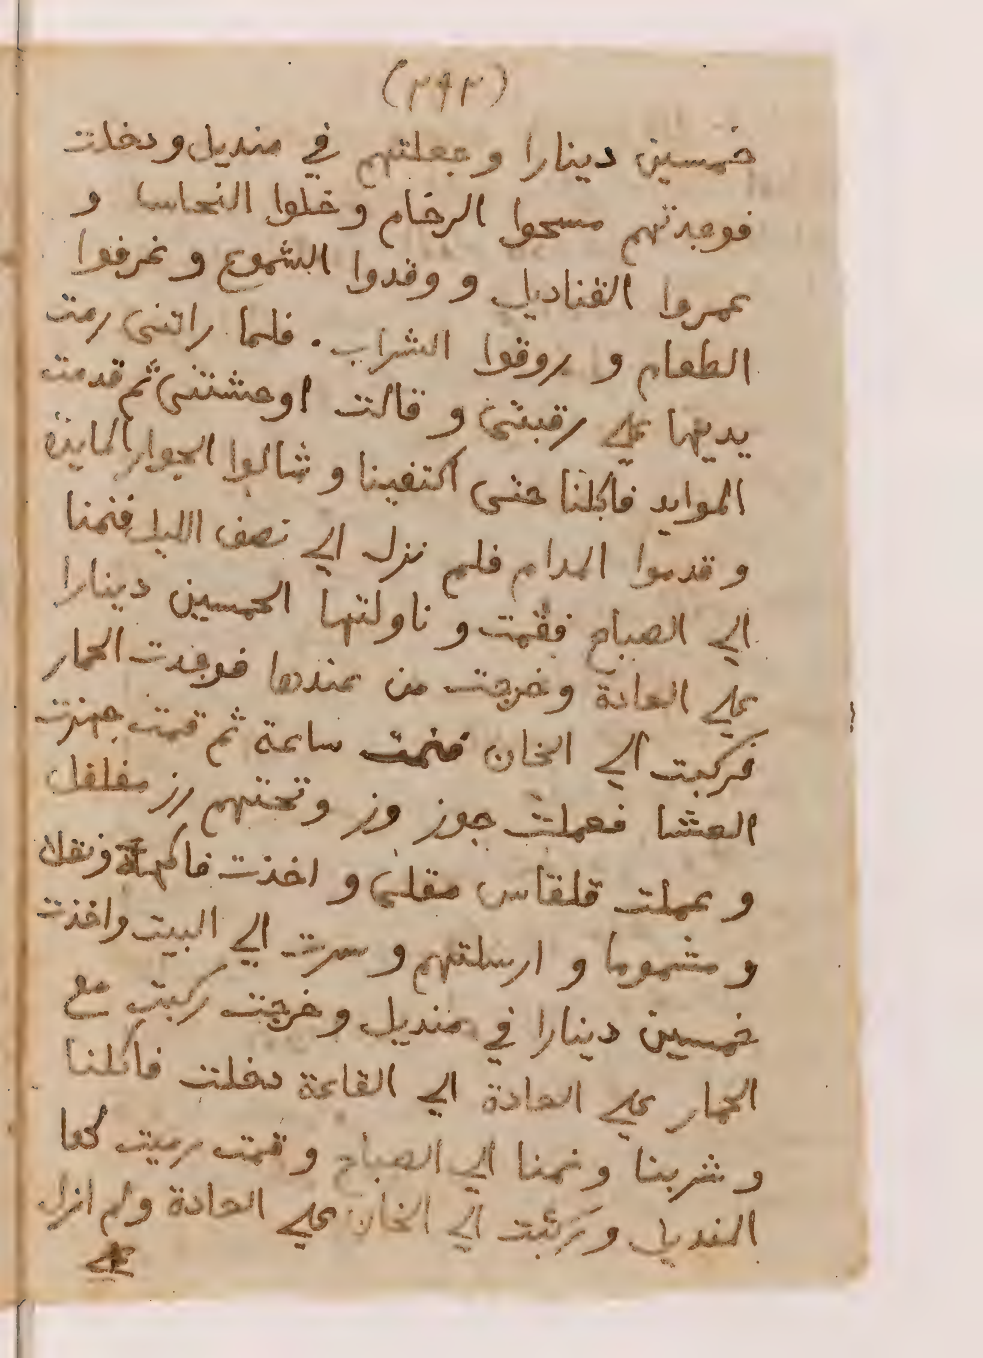 (٢٩٢)
خمسين دينارا وجعلتهم في منديل ودخلت
فوجدتهم مسحوا الرخام وخلوا النحاسا و
عمروا القناديل و وقدوا الشموع وغرفوا
الطعام و روقوا الشراب . فلما راتنى رمت
يديها على رقبتى و قالت اوحشتنى ثم قدمت
الموايد فاكلنا حتى اكتفينا و شالوا الجوار المايدة
و قدموا المدام فلم نزل الى نصف الليل فنمنا
الى الصباح فقمت و ناولتها الخمسين دينارا
على العادة وخرجت من عندها فوجدت الحمار
فركبت الى الخان فنمت ساعة ثم قمت جهزت
العشا فعملت جوز وز وتحتهم رز مفلفل
و عملت قلقاس مقلى و اخذت فاكهة ونقلا
و مشموما و ارسلتهم و سرت الى البيت واخذت
خمسين دينارا في منديل وخرجت ركبت مع
الحمار على العادة الى القاعة دخلت فاكلنا
و شربنا ونمنا الى الصباح و قمت رميت لها
المنديل وركبت الى الخان على العادة ولم ازل
على